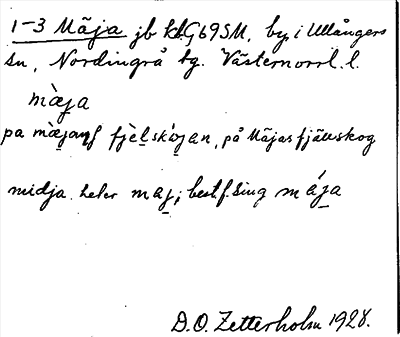 1-3 Mäja jb kbG69SM, by, i Ullångers
sn, Nordingrå tg. Västernorrl. l.
mæ̀ja
pa mæ̀janf fjèlskojan, på Mäjas fjällskog
midja heter maj; best.f.Sing mája
D.O. Zetterholm 1928.